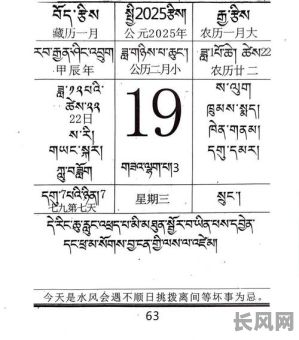 བོད་རྩིས སྤྱི2025རྩིས། རྒྱ་རྩིས
藏历一月 公元2025年 农历一月大
རབ་རྒྱན་ཤིང་འབྲུག ཟླ་གཉིས་པ་ཆུང༌། ཟླ་པོ་ཆེ། ཚེས22
甲辰年 公历二月小 农历廿二
ཟླ་༡༢པའི་ ས་ལུག
ཚེས་༢༢ 19 ཁྲུམས་སྨད།
22日 ཁེན་གནམ།
ས་རི། དགུ་དམར།
གཡང་སྐར།
ཀླུ་བཟློག གཟའ་ལྷག་པ།3
དགུ་7པའི་ཉིན།7 星期三 སྲུང༌།
七九第七天
དེ་རིང་ཆུ་རླུང་འཕྲད་པ་མི་མཐུན་སྦྱོར་བ་ཡིན་པས་དབྱེན་
དང་ཕྲ་མ་སོགས་བྱ་ངན་གྱི་ལས་ལ་འཛེམ།
今天是水风会遇不顺日挑拨离间等坏事为忌。
63
长风网